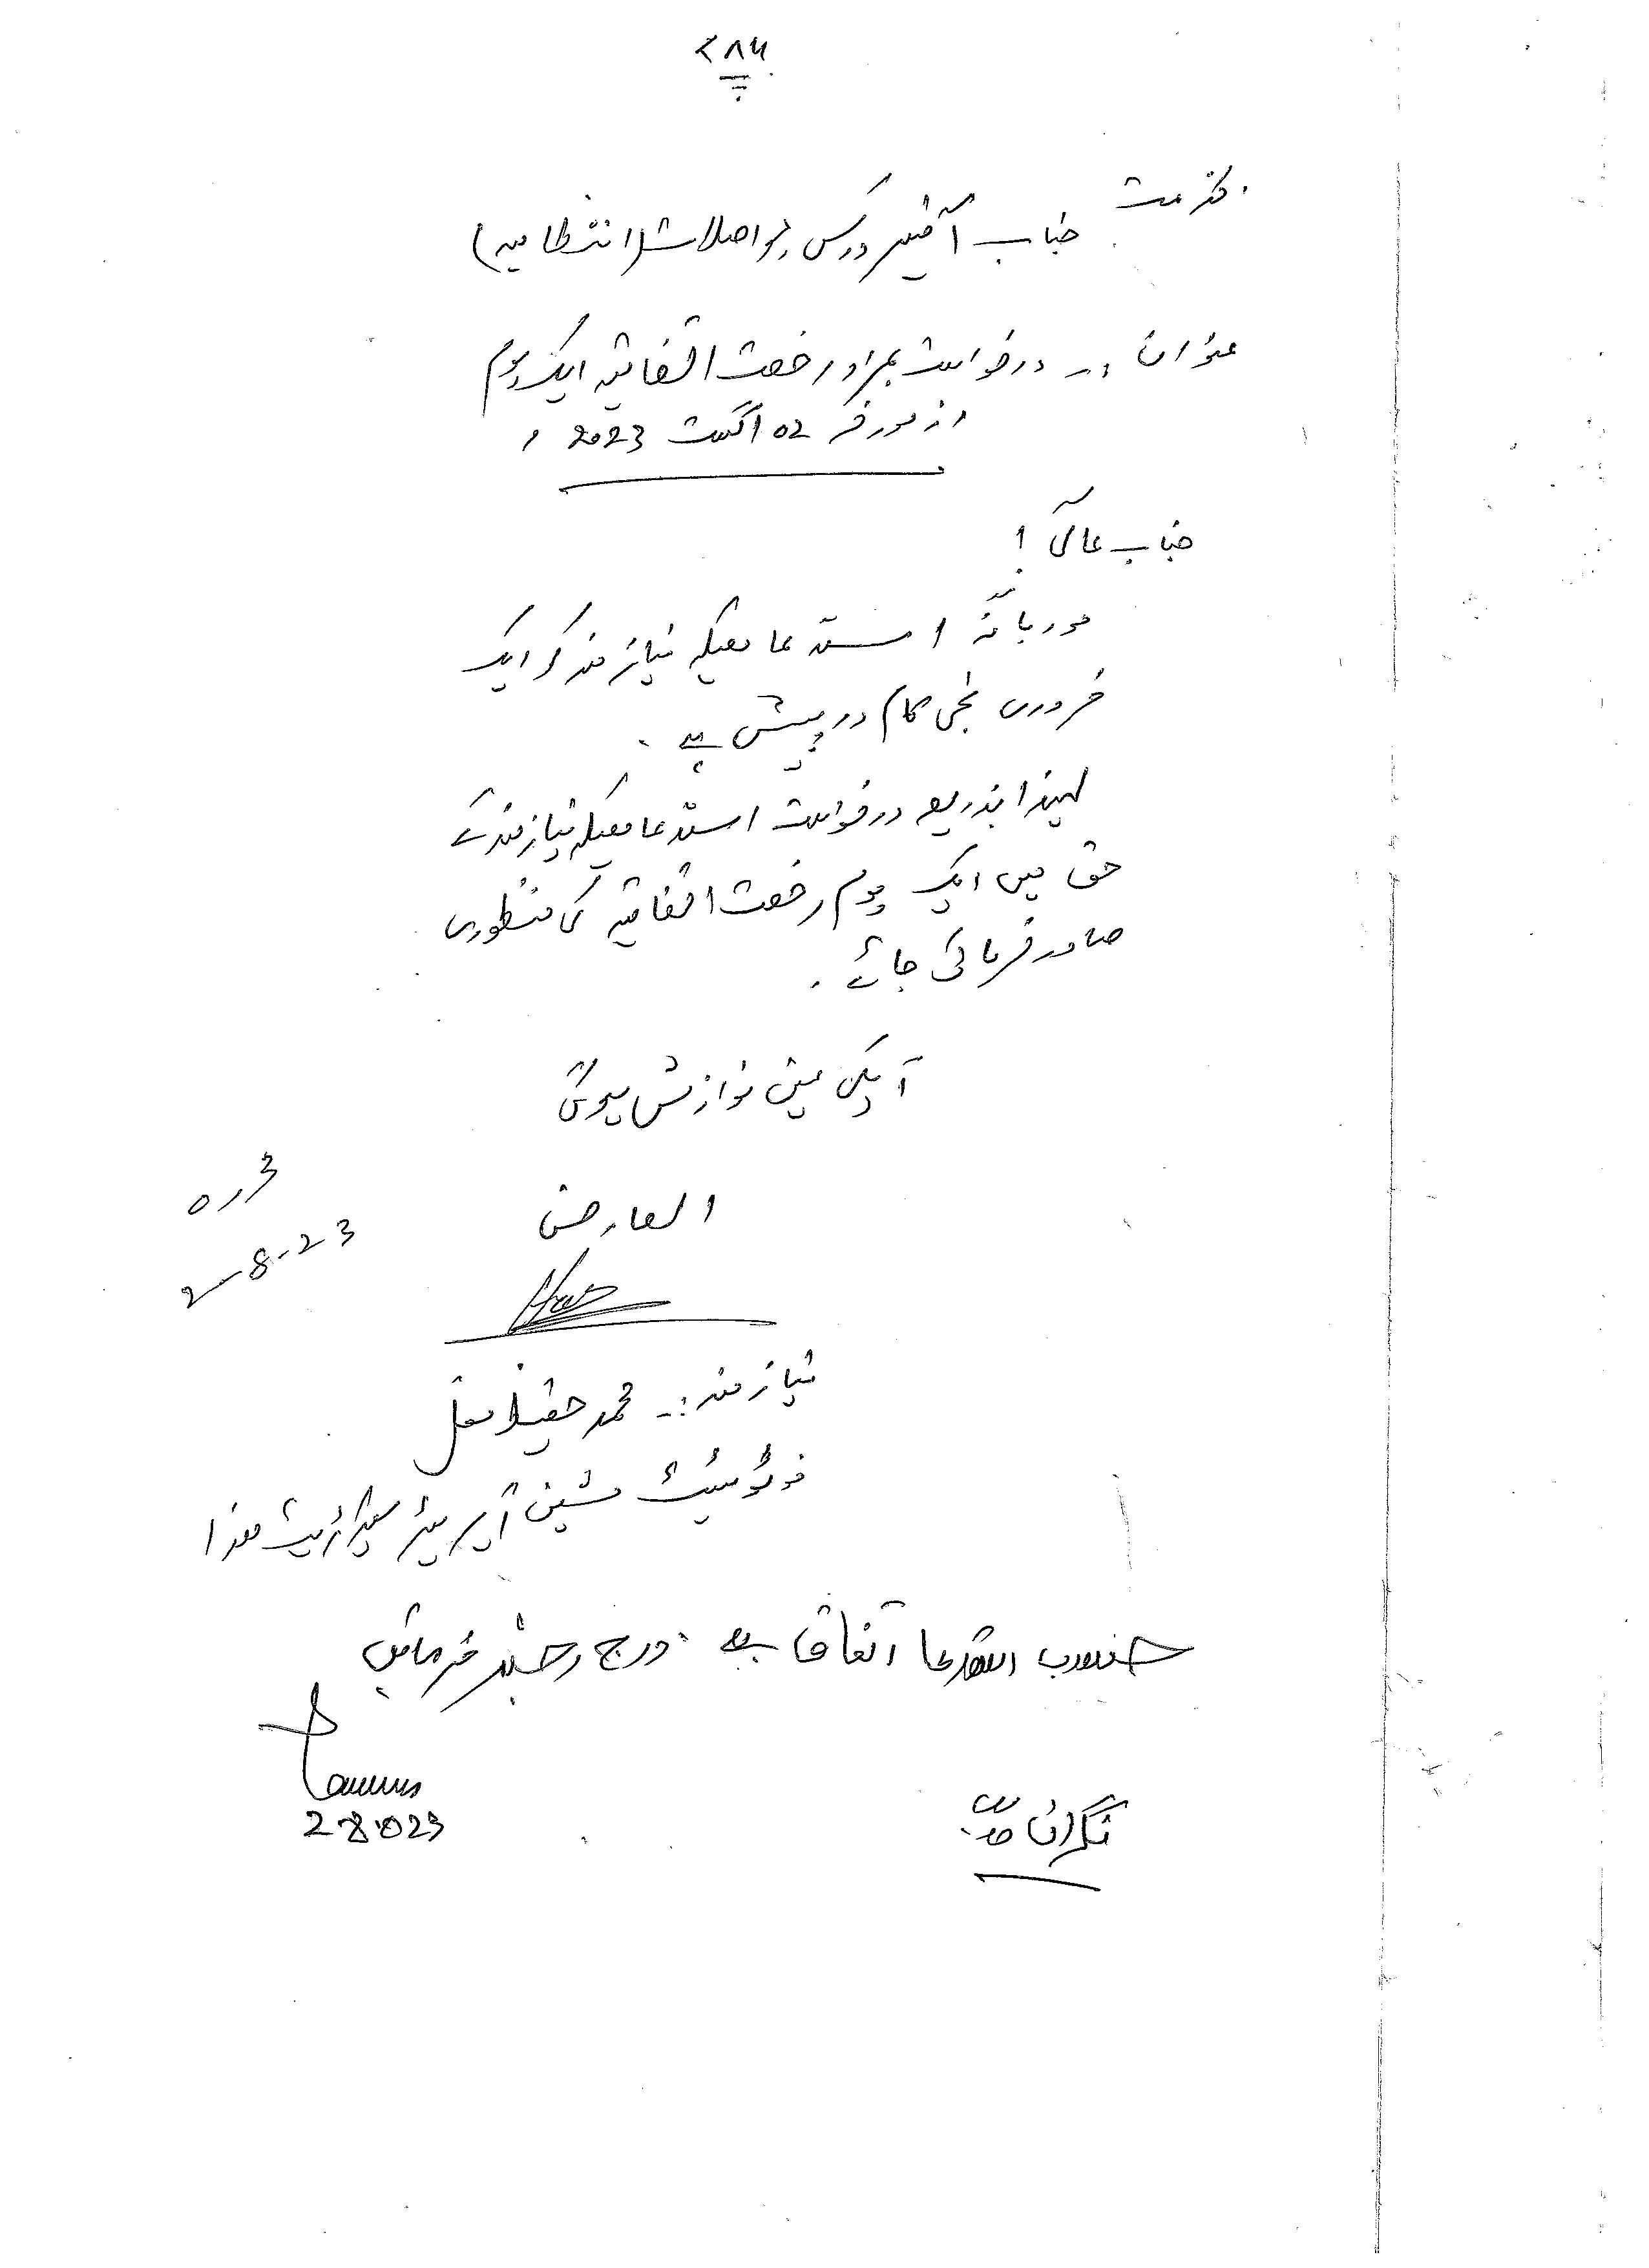 ۷۸۶
بخدمت جناب آفیسر ورکس و مواصلات (انتظامیہ)
عنوان :۔ درخواست بمراد رخصت اتفاقیہ ایک یوم
از مورخہ 02 اگست 2023ء
جناب عالی !
مودبانہ استدعا ھیکہ نیازمند کو ایک
ضروری نجی کام درپیش ہے ۔
لہذا بذریعہ درخواست استدعا ھیکہ نیازمند کے
حق میں ایک یوم رخصت اتفاقیہ کی منظوری
صادر فرمائی جائے ۔
آپکی عین نوازش ہوگی
محررہ
2-8-23
العارض
نیازمند :۔ محمد حفیظ مغل
فوٹوسٹیٹ مشین آپریٹر سیکرٹریٹ ھذا
حسب استدعا اتفاق ہے ۔ درج رجسٹر فرمائیں
2.8.023
نگران